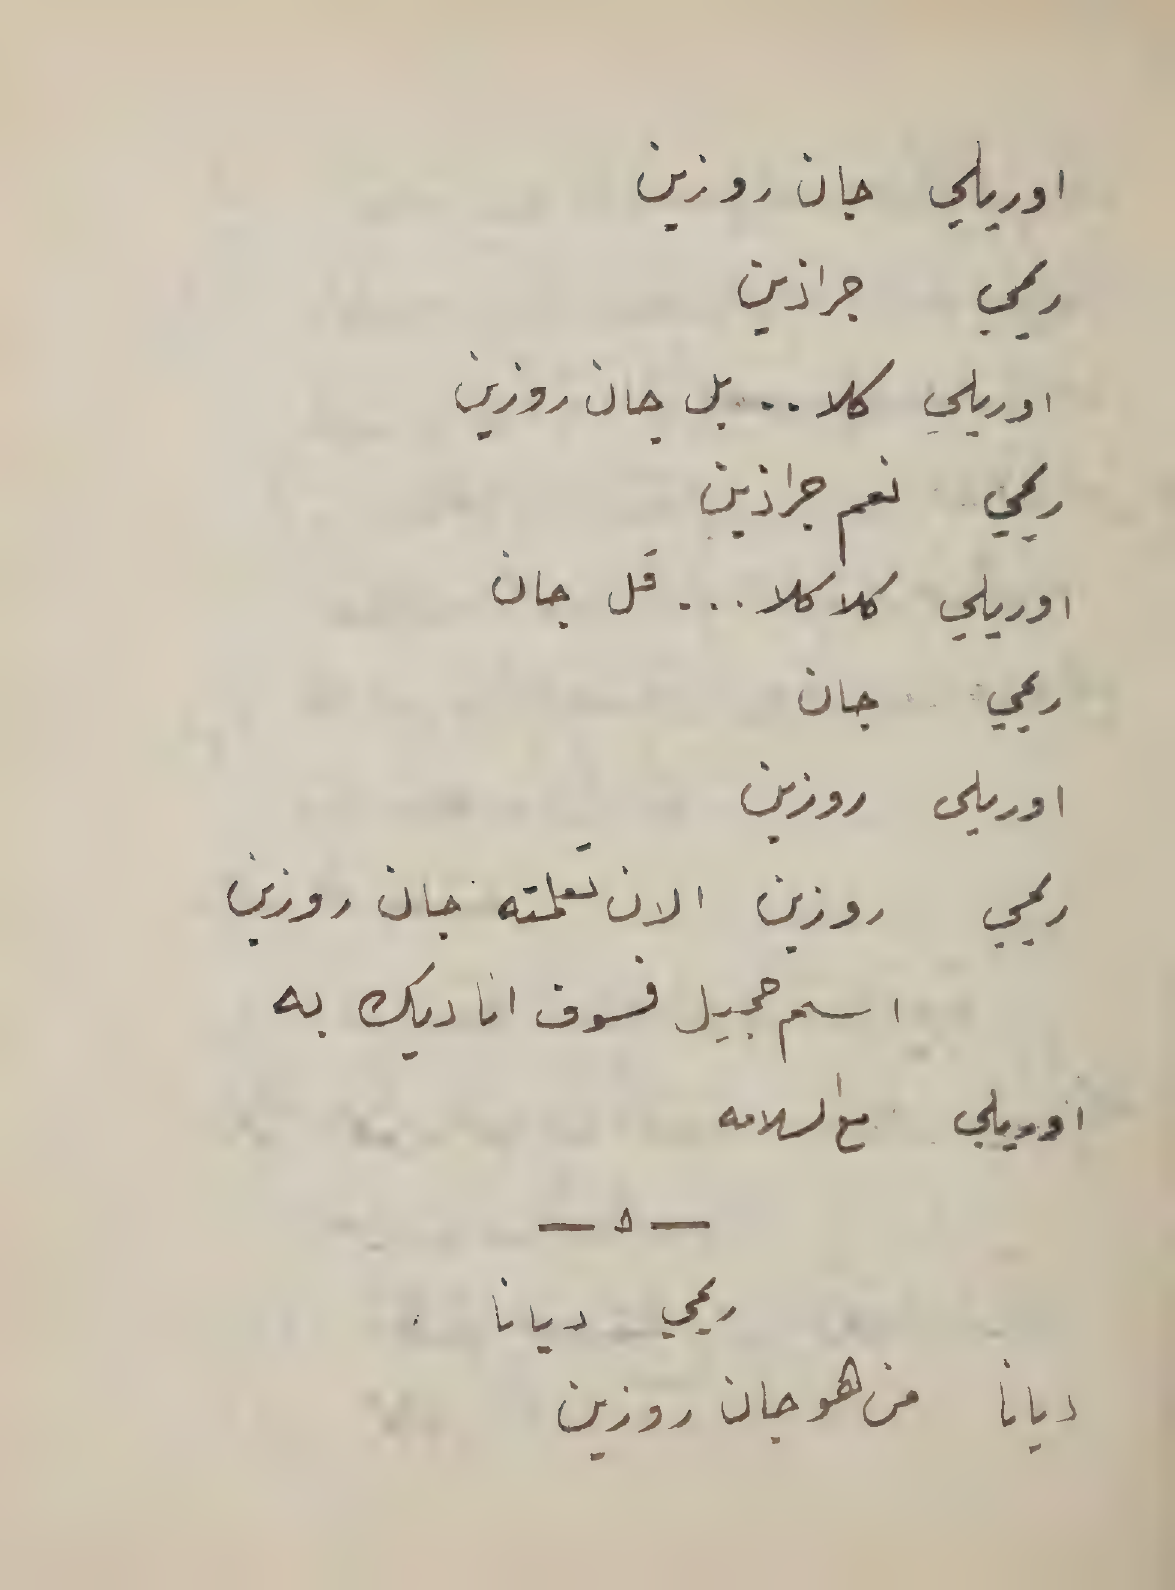 اوريلي جان روزين
ريمي جراذين
اوريلي كلا... بل جان روزين
ريمي نعم جراذين
اوريلي كلا كلا... قل جان
ريمي جان
اوريلى روزين
ريمي روزين الان تعلمته جان روزين
اسم جميل فسوف اناديك به
اوريلي مع السلامه
— ۵ —
ريمي ديانا
ديانا من هو جان روزين